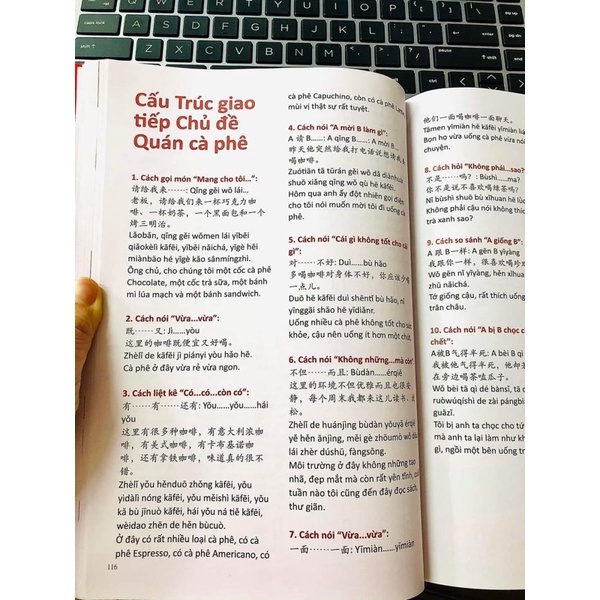 Cấu Trúc giao
tiếp Chủ đề
Quán cà phê
1. Cách gọi món "Mang cho tôi...":
请给我来……: Qǐng gěi wǒ lái...
老板，请给我们来一杯巧克力咖
啡，一杯奶茶，一个里面包和一个
烤三明治。
Lǎobǎn, qǐng gěi wǒmen lái yībēi
qiǎokèlì kāfēi, yībēi nǎichá, yīgè hēi
miànbāo hé yígè kǎo sānmíngzhì.
Ông chủ, cho chúng tôi một cốc cà phê
Chocolate, một cốc trà sữa, một bánh
mì lúa mạch và một bánh sandwich.
2. Cách nói "Vừa...vừa":
既……又: Jì……yòu
这里的咖啡既便宜又好喝。
Zhèlǐ de kāfēi jì piányi yòu hǎo hē.
Cà phê ở đây vừa rẻ vừa ngon.
3. Cách liệt kê "Có...có...còn có":
有……有……还有: Yǒu……yǒu……hái
yǒu
这里有很多种咖啡，有意大利浓咖
啡，有美式咖啡，有卡布基诺咖
啡，还有拿铁咖啡，味道真的很不
错。
Zhèlǐ yǒu hěnduō zhǒng kāfēi, yǒu
yìdàlì nóng kāfēi, yǒu měishì kāfēi, yǒu
kǎ bù jīnuò kāfēi, hái yǒu ná tiě kāfēi,
wèidao zhēn de hěn bùcuò.
Ở đây có rất nhiều loại cà phê, có cà
phê Espresso, có cà phê Americano, có
116
cà phê Capuchino, còn có cà phê
mùi vị thật sư rất tuyệt.
4. Cách nói "A mời B làm gì":
A 请 B……: A qǐng B……:
昨天他突然给我打电话说想请我去
喝咖啡。
Zuótiān tā tūrán gěi wǒ dǎ diànhuà
shuō xiǎng qǐng wǒ qù hē kāfēi.
Hôm qua anh ấy đột nhiên gọi điện
cho tôi nói muốn mời tôi đi uống
phê.
5. Cách nói "Cái gì không tốt cho cái
gì":
对……不好: Duì……bù hǎo
多喝咖啡对身体不好，你应该少喝
一点儿。
Duō hē kāfēi duì shēntǐ bù hǎo, nǐ
yīnggāi shǎo hē yīdiǎnr.
Uống nhiều cà phê không tốt cho sức
khỏe, cậu nên uống ít hơn một chút.
6. Cách nói "Không những...mà còn"
不但……而且: Bùdàn……érqiě
这里的环境不但优雅而且也很安
静，每个周末我都来这儿读书、放
松。
Zhèlǐ de huánjìng bùdàn yōuyǎ érqiě
yě hěn ānjìng, měi gè zhōumò wǒ dōu
lái zhèr dúshū, fàngsōng.
Môi trường ở đây không những tao
nhã, đẹp mắt mà còn rất yên tĩnh,
tuần nào tôi cũng đến đây đọc sách,
thư giãn.
7. Cách nói "Vừa...vừa":
一面……一面: Yīmiàn……yīmiàn
他们一面喝咖啡一面聊天。
Tāmen yīmiàn hē kāfēi yīmiàn
Bọn họ vừa uống cà phê vừa nói
chuyện.
8. Cách hỏi "Không phải...sao?
不是……吗？: Bùshì……ma?
你不是说不喜欢喝绿茶吗？
Nǐ bùshì shuō bù xǐhuan hē
Không phải cậu nói không thích
trà xanh sao?
9. Cách so sánh "A giống B"
A 跟 B一样: A gēn B yìyàng
我跟你一样，很喜欢喝珍
Wǒ gēn nǐ yīyàng, hěn xǐhuan
zhū nǎichá.
Tớ giống cậu, rất thích uống
trân châu.
10. Cách nói "A bị B chọc
chết":
A被B气得半死: A bèi B qì
我被他气得半死，他却
在旁边喝茶嗑瓜子。
Wǒ bèi tā qì dé bànsǐ, tā
ruòwúqíshì de zài pángbiān
guāzǐ.
Tôi bị anh ta chọc cho tức
mà anh ta lại làm như không
gì, ngồi một bên uống
caps lock
shift
ctrl
pause
shift